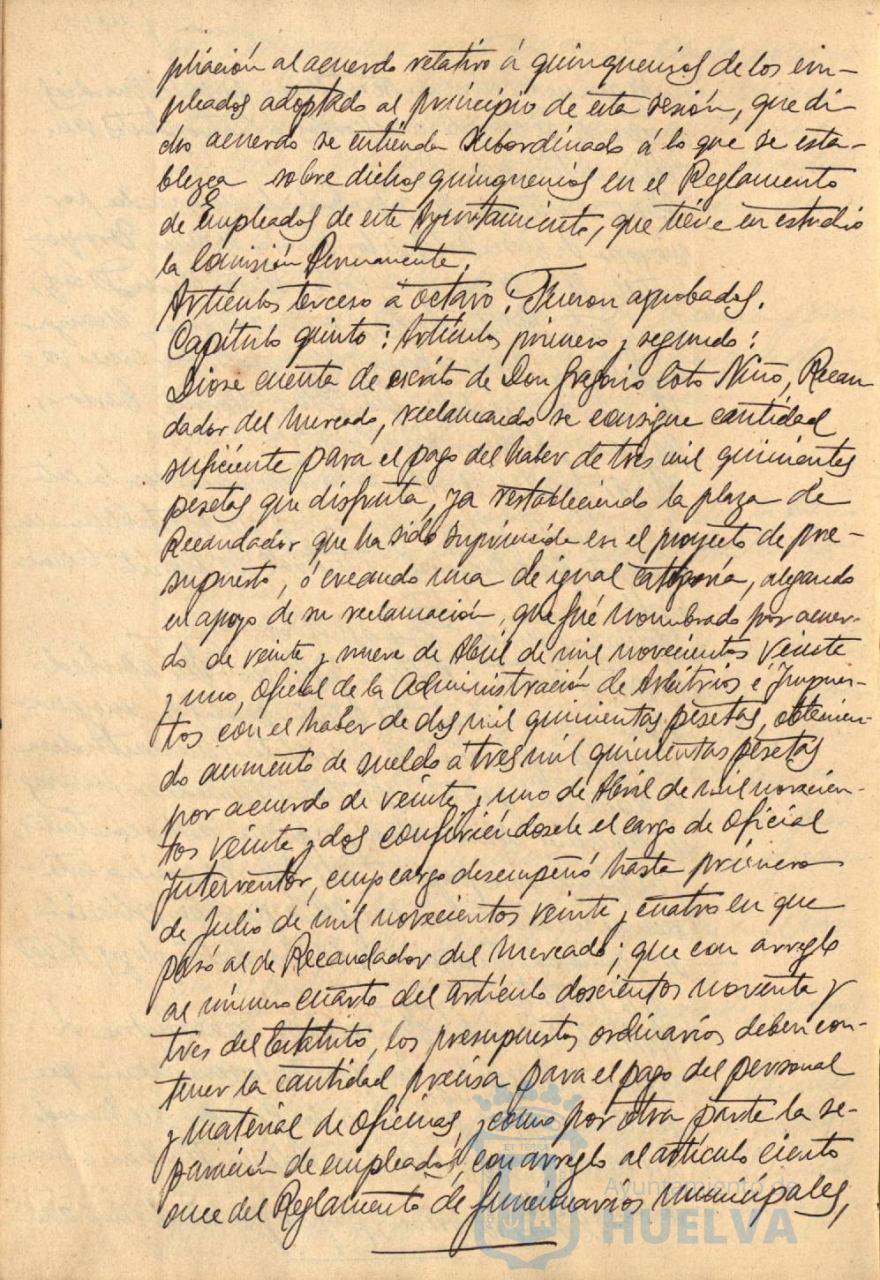 pliación al acuerdo relativo á quinquenios de los em-
pleados adoptado al principio de esta sesión, que di-
cho acuerdo se entienda subordinado á lo que se esta-
blezca sobre dichos quinquenios en el Reglamento
de Empleados de este Ayuntamiento, que tiene en estudio
la Comisión Permanente.
Artículos tercero á octavo. Fueron aprobados.
Capítulo quinto: Artículos primero y segundo:
Diose cuenta de escrito de Don Gregorio Coto Niño, Recau
dador del Mercado, reclamando se consigne cantidad
suficiente para el pago del haber de tres mil quinientas
pesetas que disfruta, ya restableciendo la plaza de
Recaudador que ha sido suprimida en el proyecto de pre-
supuesto, ó creando una de igual categoría, alegando
en apoyo de su reclamación, que fué nombrado por acuer-
do de veinte y nueve de Abril de mil novecientos veinte
y uno, Oficial de la Administración de Arbitrios é Impues-
tos con el haber de dos mil quinientas pesetas, obtenien-
do aumento de sueldo á tres mil quinientas pesetas
por acuerdo de veinte y uno de Abril de mil novecien-
tos veinte y dos confiriéndosele el cargo de Oficial
Interventor, cuyo cargo desempeñó hasta primero
de Julio de mil novecientos veinte y cuatro en que
pasó al de Recaudador del Mercado; que con arreglo
al número cuarto del artículo doscientos noventa y
tres del Estatuto, los presupuestos ordinarios deben con-
tener la cantidad precisa para el pago del personal
y material de oficinas, y como por otra parte la se-
paración de empleados, con arreglo al artículo ciento
once del Reglamento de funcionarios municipales,
Ayuntamiento de
HUELVA